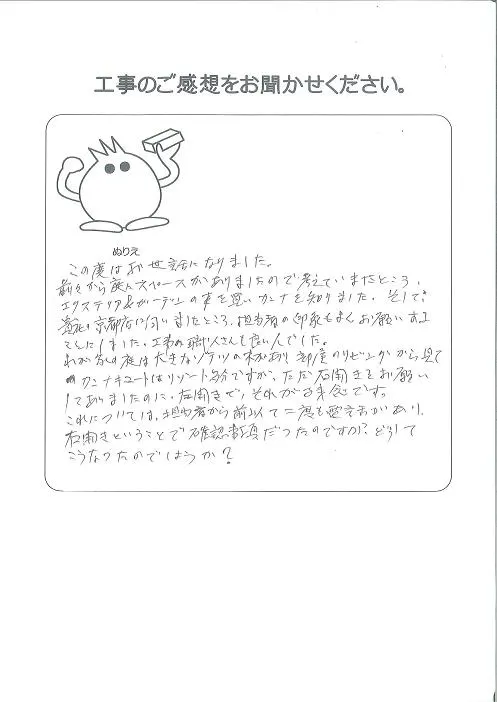 工事のご感想をお聞かせください。
ぬりえ
この度はお世話になりました。
前々から庭にスペースがありましたので考えていまたところ、
エクステリア&ガーデンの本を買いカンナを知りました。そして
京都店に伺いましたところ、担当者の印象もよくお願いする
ことにしました。工事の職人さんも良い人でした。
わが家の庭は大きなソテツの木があり 部屋のリビングから見て
カンナキュートはリゾート気分ですが、ただ右開きをお願い
してありましたのに、左開きで、それが残念です。
これについては、担当者から前以て二度も電話があり、
右開きということで確認書類だったのですが? どうして
こうなったのでしょうか?